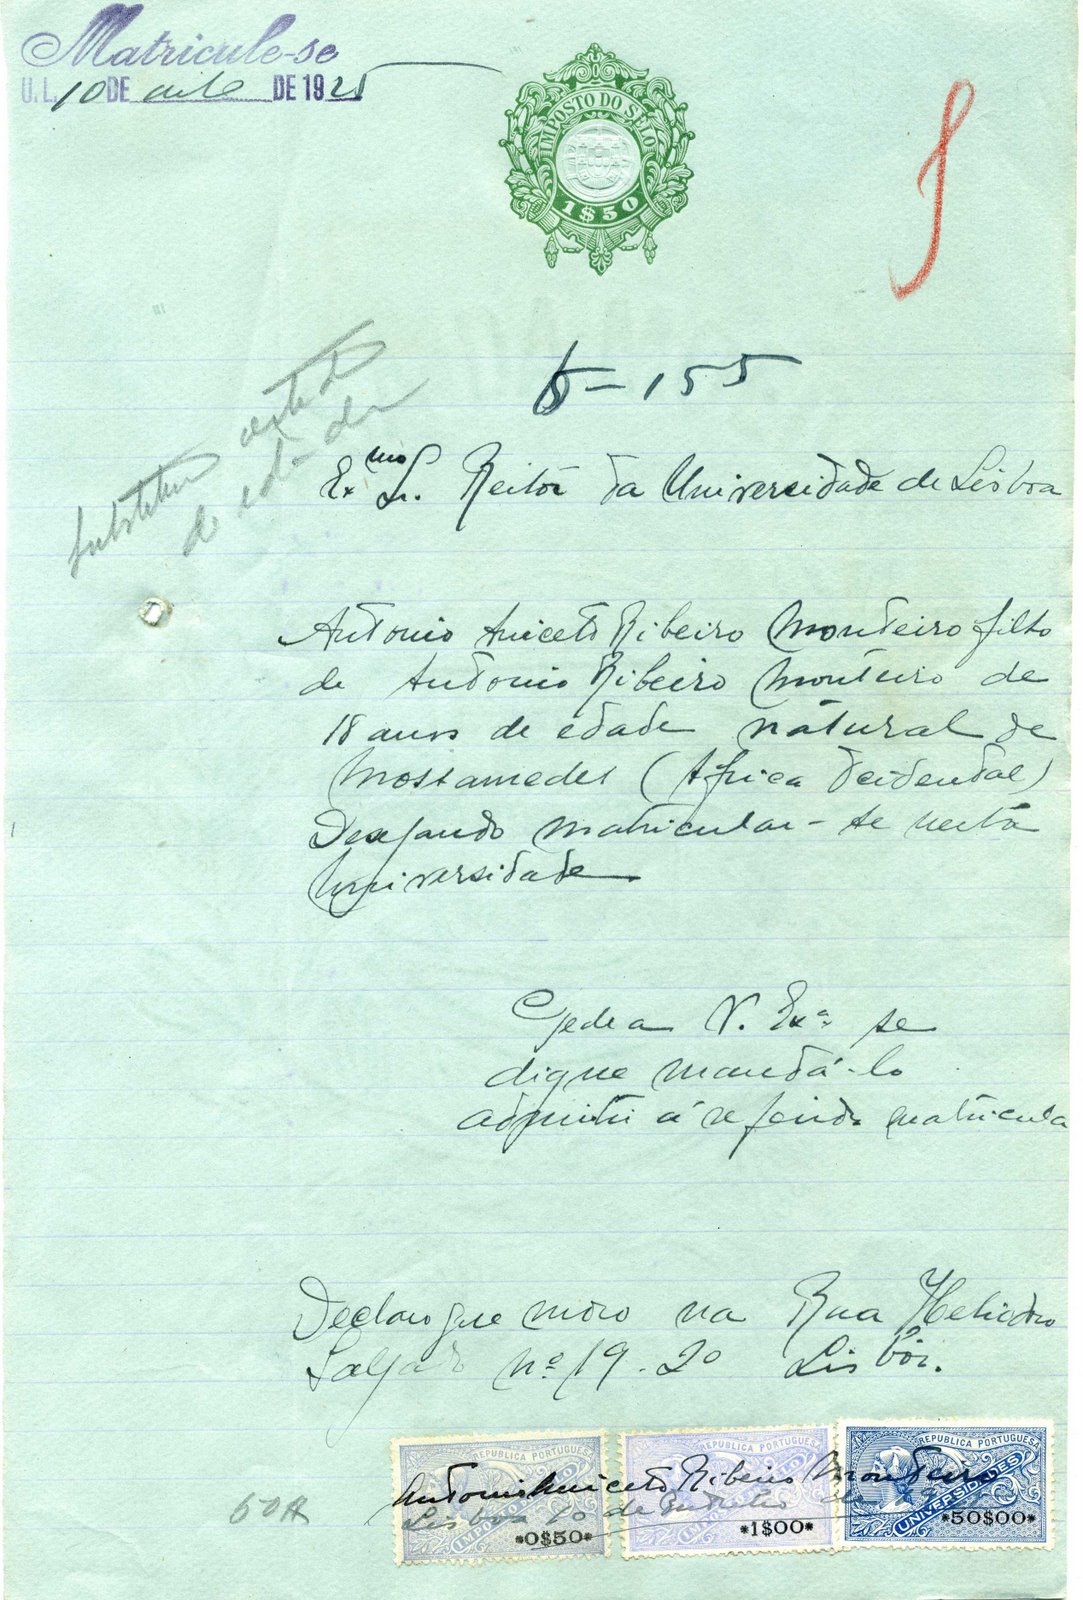 Matricule-se
U.L. 10 DE DE 1925
IMPOSTO DO SELO
1$50
155
substituir
de
Exmo Sr. Reitor da Universidade de Lisboa
Antonio Aniceto Ribeiro Monteiro filho
de Antonio Ribeiro Monteiro de
18 anos de edade natural de
Mossamedes (Africa Ocidental)
Desejando matricular-se nesta
Universidade
Pede a V. Exa se
digne mandá-lo
admitir á referida matricula
Declaro que moro na Rua Heliodoro
Salgado nº 19-2º Lisbôa.
REPUBLICA PORTUGUESA
REPUBLICA PORTUGUESA
REPUBLICA PORTUGUESA
Antonio Aniceto Ribeiro Monteiro
Lisboa 10 de Outubro de
UNIVERSIDADES
*0$50*
*1$00*
*50$00*